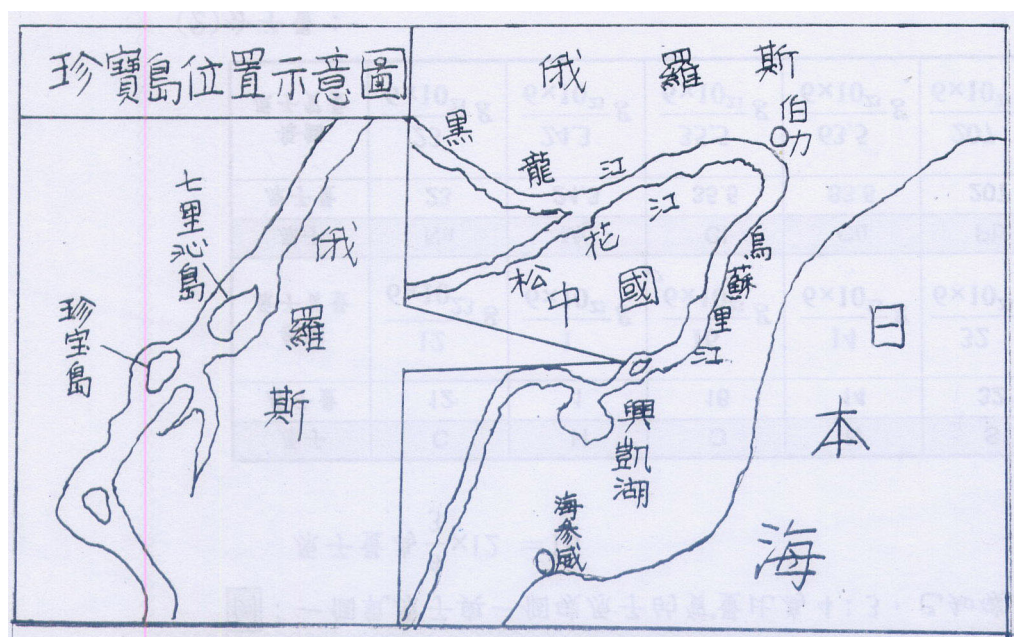 珍寶島位置示意圖
七里沁島
珍宝島
俄羅斯
俄羅斯
伯力
黑龍江
松花江
烏蘇里江
中國
興凱湖
海參威
日本海